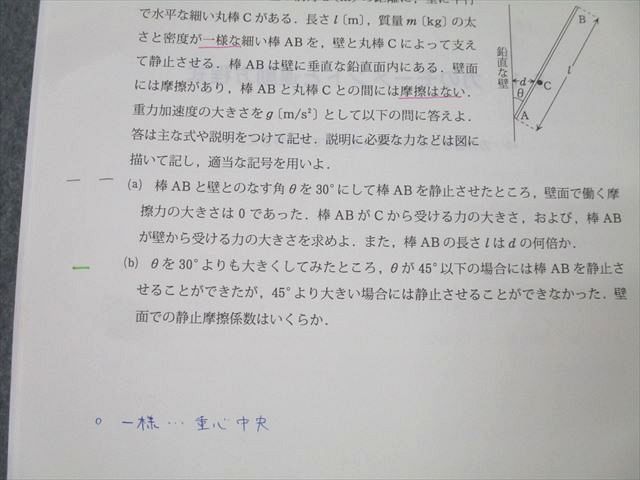 で水平な細い丸棒Cがある．長さl〔m〕，質量m〔kg〕の太
さと密度が一様な細い棒ABを，壁と丸棒Cによって支え
て静止させる．棒ABは壁に垂直な鉛直面内にある．壁面
には摩擦があり，棒ABと丸棒Cとの間には摩擦はない．
重力加速度の大きさをg〔m/s²〕として以下の問に答えよ．
答は主な式や説明をつけて記せ．説明に必要な力などは図に
描いて記し，適当な記号を用いよ．
鉛直な壁
B
d
C
l
θ
A
(a) 棒ABと壁とのなす角θを30°にして棒ABを静止させたところ，壁面で働く摩
擦力の大きさは0であった．棒ABがCから受ける力の大きさ，および，棒AB
が壁から受ける力の大きさを求めよ．また，棒ABの長さlはdの何倍か．
(b) θを30°よりも大きくしてみたところ，θが45°以下の場合には棒ABを静止さ
せることができたが，45°より大きい場合には静止させることができなかった．壁
面での静止摩擦係数はいくらか．
○ 一様… 重心 中央